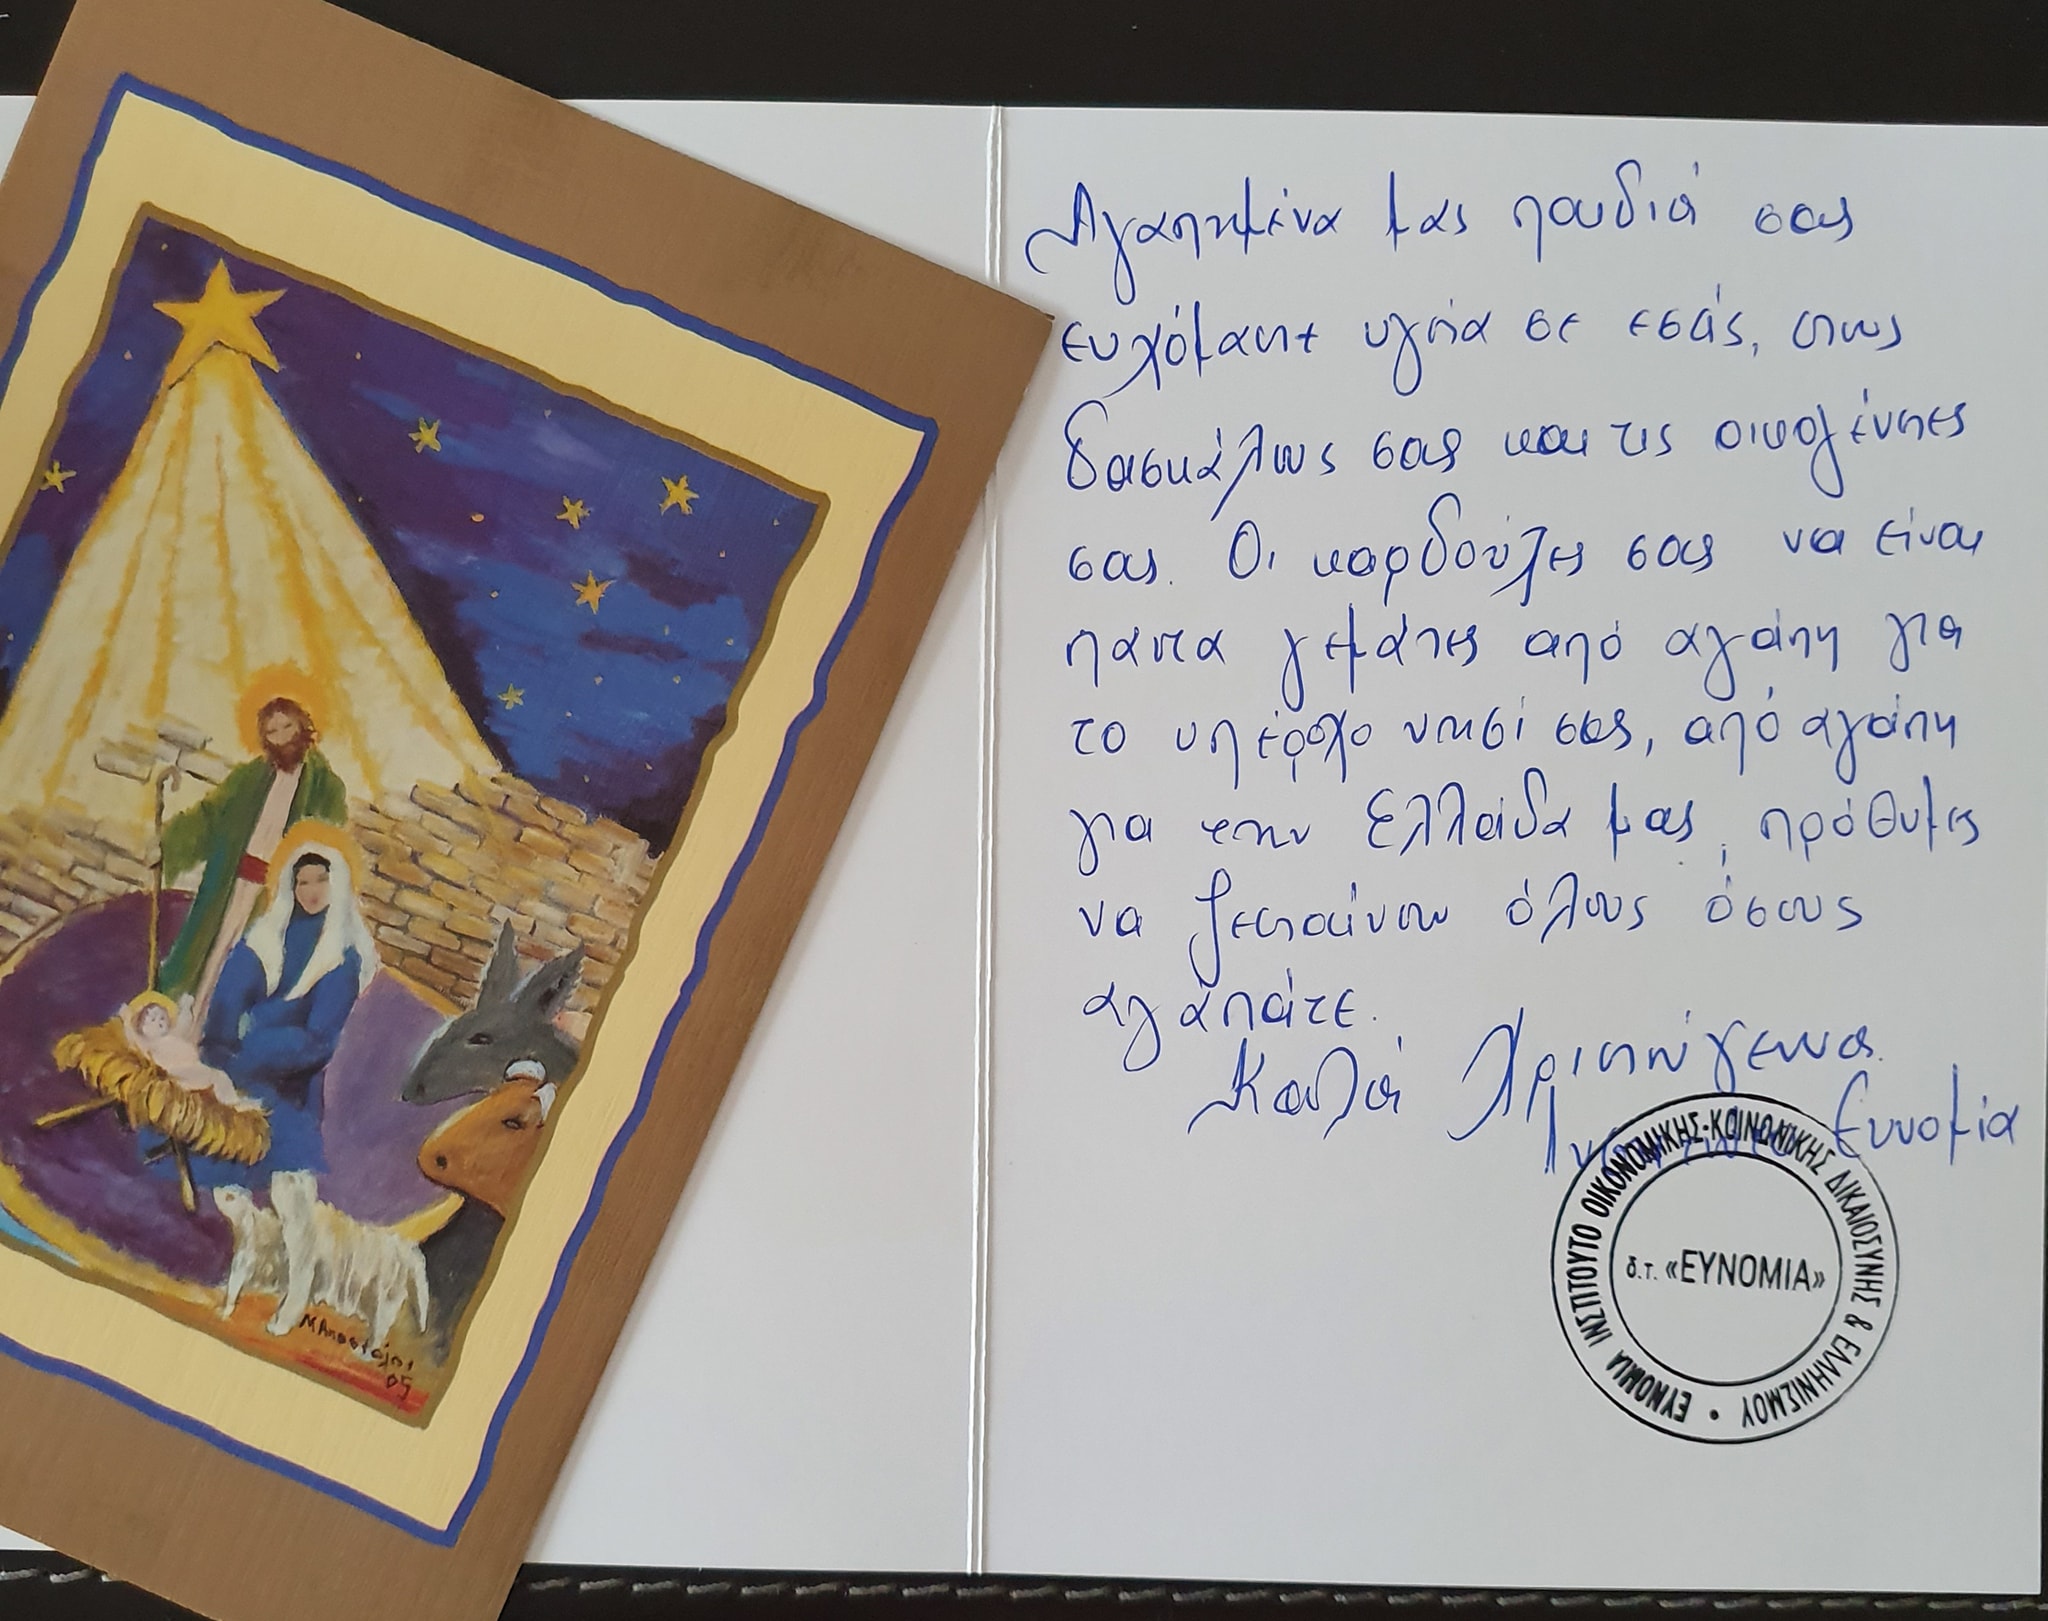 Αγαπημένα μας παιδιά σας
ευχόμαστε υγεία σε εσάς, στους
δασκάλους σας και τις οικογένειες
σας. Οι καρδούλες σας να είναι
παντα γεμάτες από αγάπη για
το υπέροχο νησί σας, από αγάπη
για την Ελλάδα μας, πρόθυμες
να ζεσταίνουν όλους όσους
αγαπάτε.
Καλά Χριστούγεννα.
Ινστιτούτο Ευνομία
ΕΥΝΟΜΙΑ ΙΝΣΤΙΤΟΥΤΟ ΟΙΚΟΝΟΜΙΚΗΣ-ΚΟΙΝΩΝΙΚΗΣ ΔΙΚΑΙΟΣΥΝΗΣ & ΕΛΛΗΝΙΣΜΟΥ •
δ.τ. «ΕΥΝΟΜΙΑ»
Μ Αποστόλου
05